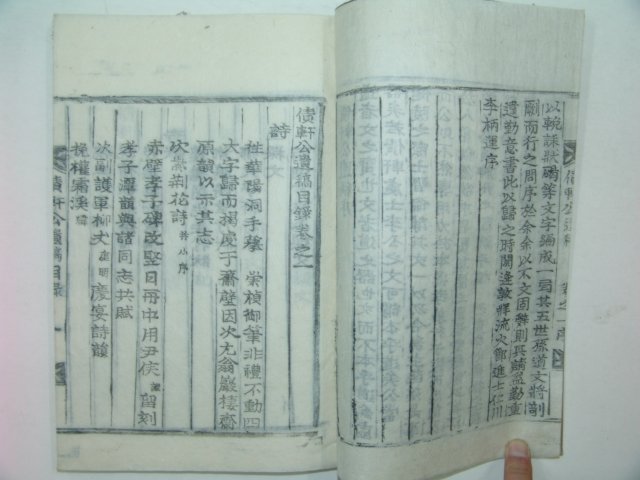 債軒公遺稿 卷之一序
以輓誄狀碣等文字編成一卷其五世孫道文將剞
劂而行之問序於余余以不文固辭則長請益勤重
違勤意書此以歸之時閼逢敦牂流火節進士仁川
李柄運序
債軒公遺稿目錄卷之一
詩
往華陽洞手摹 崇禎御筆非禮不動四
大字歸而揭處于齋壁因次尤翁巖棲齋
原韻以示其志
次紫荊花詩 幷小序
赤壁李子碑改竪日舟中用尹侯 留刻
孝子潭韻與諸同志共賦
次副護軍柳丈 慶宴詩韻
挽權霽溪
債軒公遺稿目錄 一